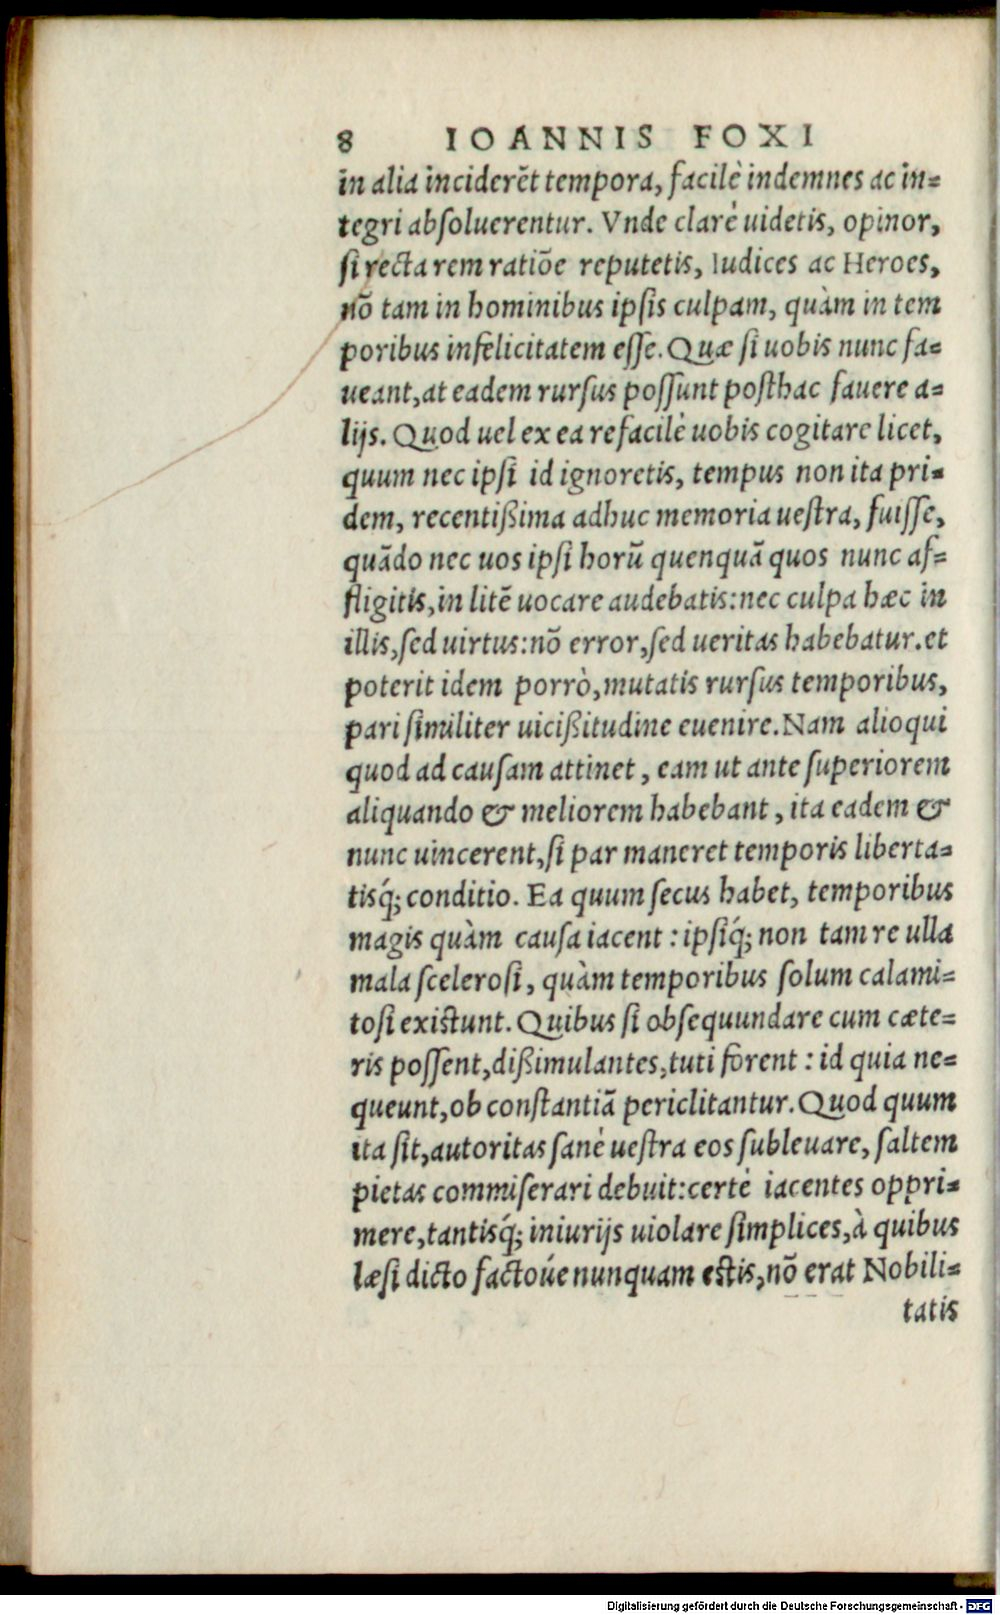 8 IOANNIS FOXI
in alia inciderēt tempora, facilè indemnes ac in=
tegri absoluerentur. Vnde clarè uidetis, opinor,
si recta rem ratiōe reputetis, Iudices ac Heroes,
nō tam in hominibus ipsis culpam, quàm in tem
poribus infelicitatem esse. Quæ si uobis nunc fa=
ueant, at eadem rursus possunt posthac fauere a=
lijs. Quod uel ex ea re facilè uobis cogitare licet,
quum nec ipsi id ignoretis, tempus non ita pri=
dem, recentißima adhuc memoria uestra, fuisse,
quādo nec uos ipsi horū quenquā quos nunc af=
fligitis, in litē uocare audebatis: nec culpa hæc in
illis, sed uirtus: nō error, sed ueritas habebatur. et
poterit idem porrò, mutatis rursus temporibus,
pari similiter uicißitudine euenire. Nam alioqui
quod ad causam attinet, eam ut ante superiorem
aliquando & meliorem habebant, ita eadem &
nunc uincerent, si par maneret temporis liberta=
tisq́; conditio. Ea quum secus habet, temporibus
magis quàm causa iacent: ipsiq́; non tam re ulla
mala scelerosi, quàm temporibus solum calami=
tosi existunt. Quibus si obsequundare cum cæte=
ris possent, dißimulantes, tuti forent: id quia ne=
queunt, ob constantiā periclitantur. Quod quum
ita sit, autoritas sanè uestra eos subleuare, saltem
pietas commiserari debuit: certè iacentes oppri=
mere, tantisq́; iniurijs uiolare simplices, à quibus
læsi dicto factoúe nunquam estis, nō erat Nobili=
tatis
Digitalisierung gefördert durch die Deutsche Forschungsgemeinschaft - DFG